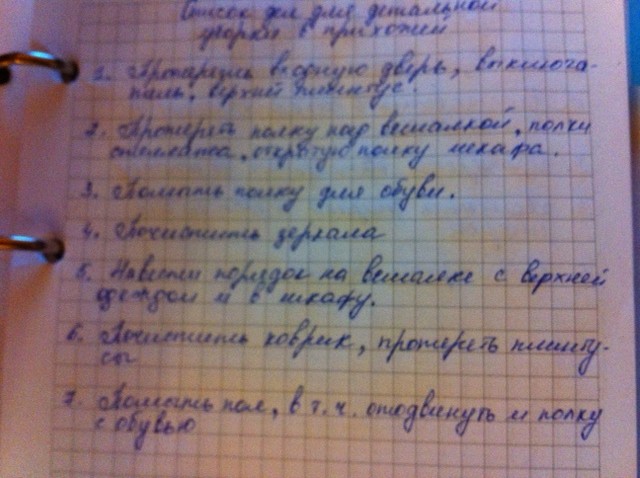 Список дел для детальной
уборки в прихожей
1. Протереть входную дверь, выключа-
тель, верхний плинтус.
2. Протереть полку над вешалкой, полки
стеллажа, открытую полку шкафа.
3. Помыть полку для обуви.
4. Почистить зеркала
5. Навести порядок на вешалке с верхней
одеждой и в шкафу.
6. Почистить коврик, протереть плинту-
сы
7. Помыть пол, в т.ч. отодвинуть и полку
с обувью